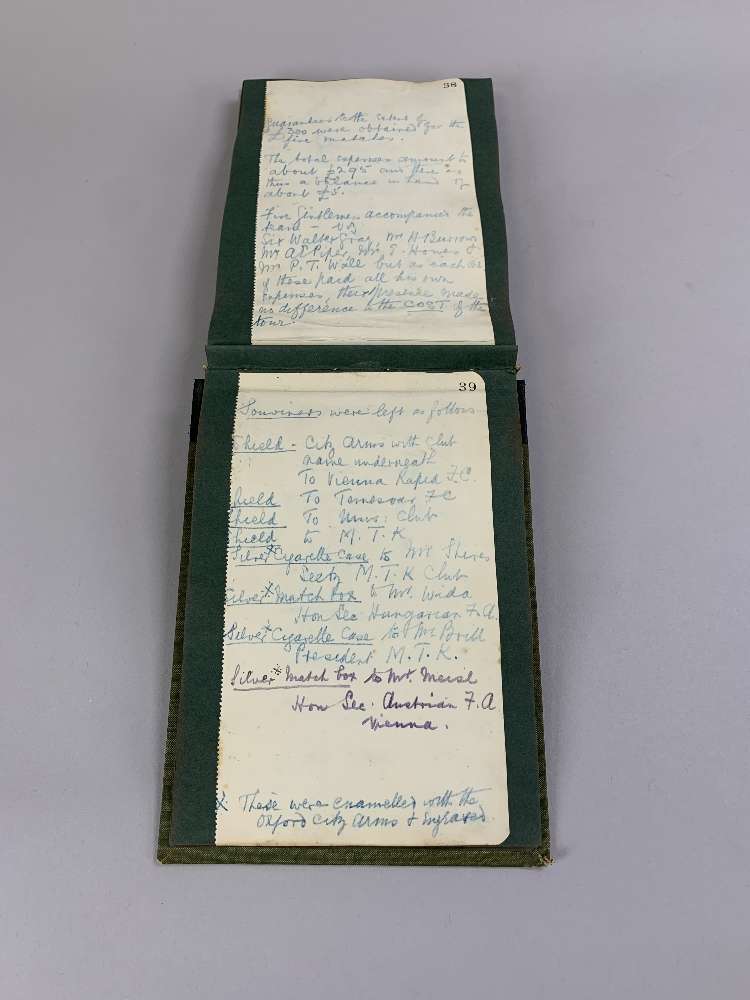 38
Guarantees to the extent of
£300 were obtained for the
five matches.
The total expenses amount to
about £295 and there is
thus a balance in hand of
about £5.
Five Gentlemen accompanied the
team - viz
Sir Walter Gray, Mr H Burrows
Mr A E Piper, Mr E. Howes &
Mr P. T. Wall but as each one
of these paid all his own
expenses, their presence made
no difference to the COST of the
tour.
39
Souviners were left as follows
Shield - City Arms with club
name underneath
To Vienna Rapid F.C.
Shield To Temesvar FC
Shield To Univ: Club
Shield to M.T.K
Silver x Cigarette Case to Mr Shires
Secty M.T.K Club
Silver x Match box to Mr. Wida
Hon Sec Hungarian F.A.
Silver x Cigarette Case to Mr Brill
President M.T.K.
Silver x Match box to Mr. Meisl
Hon Sec. Austrian F.A
Vienna.
x These were enamelled with the
Oxford City Arms & Engraved.